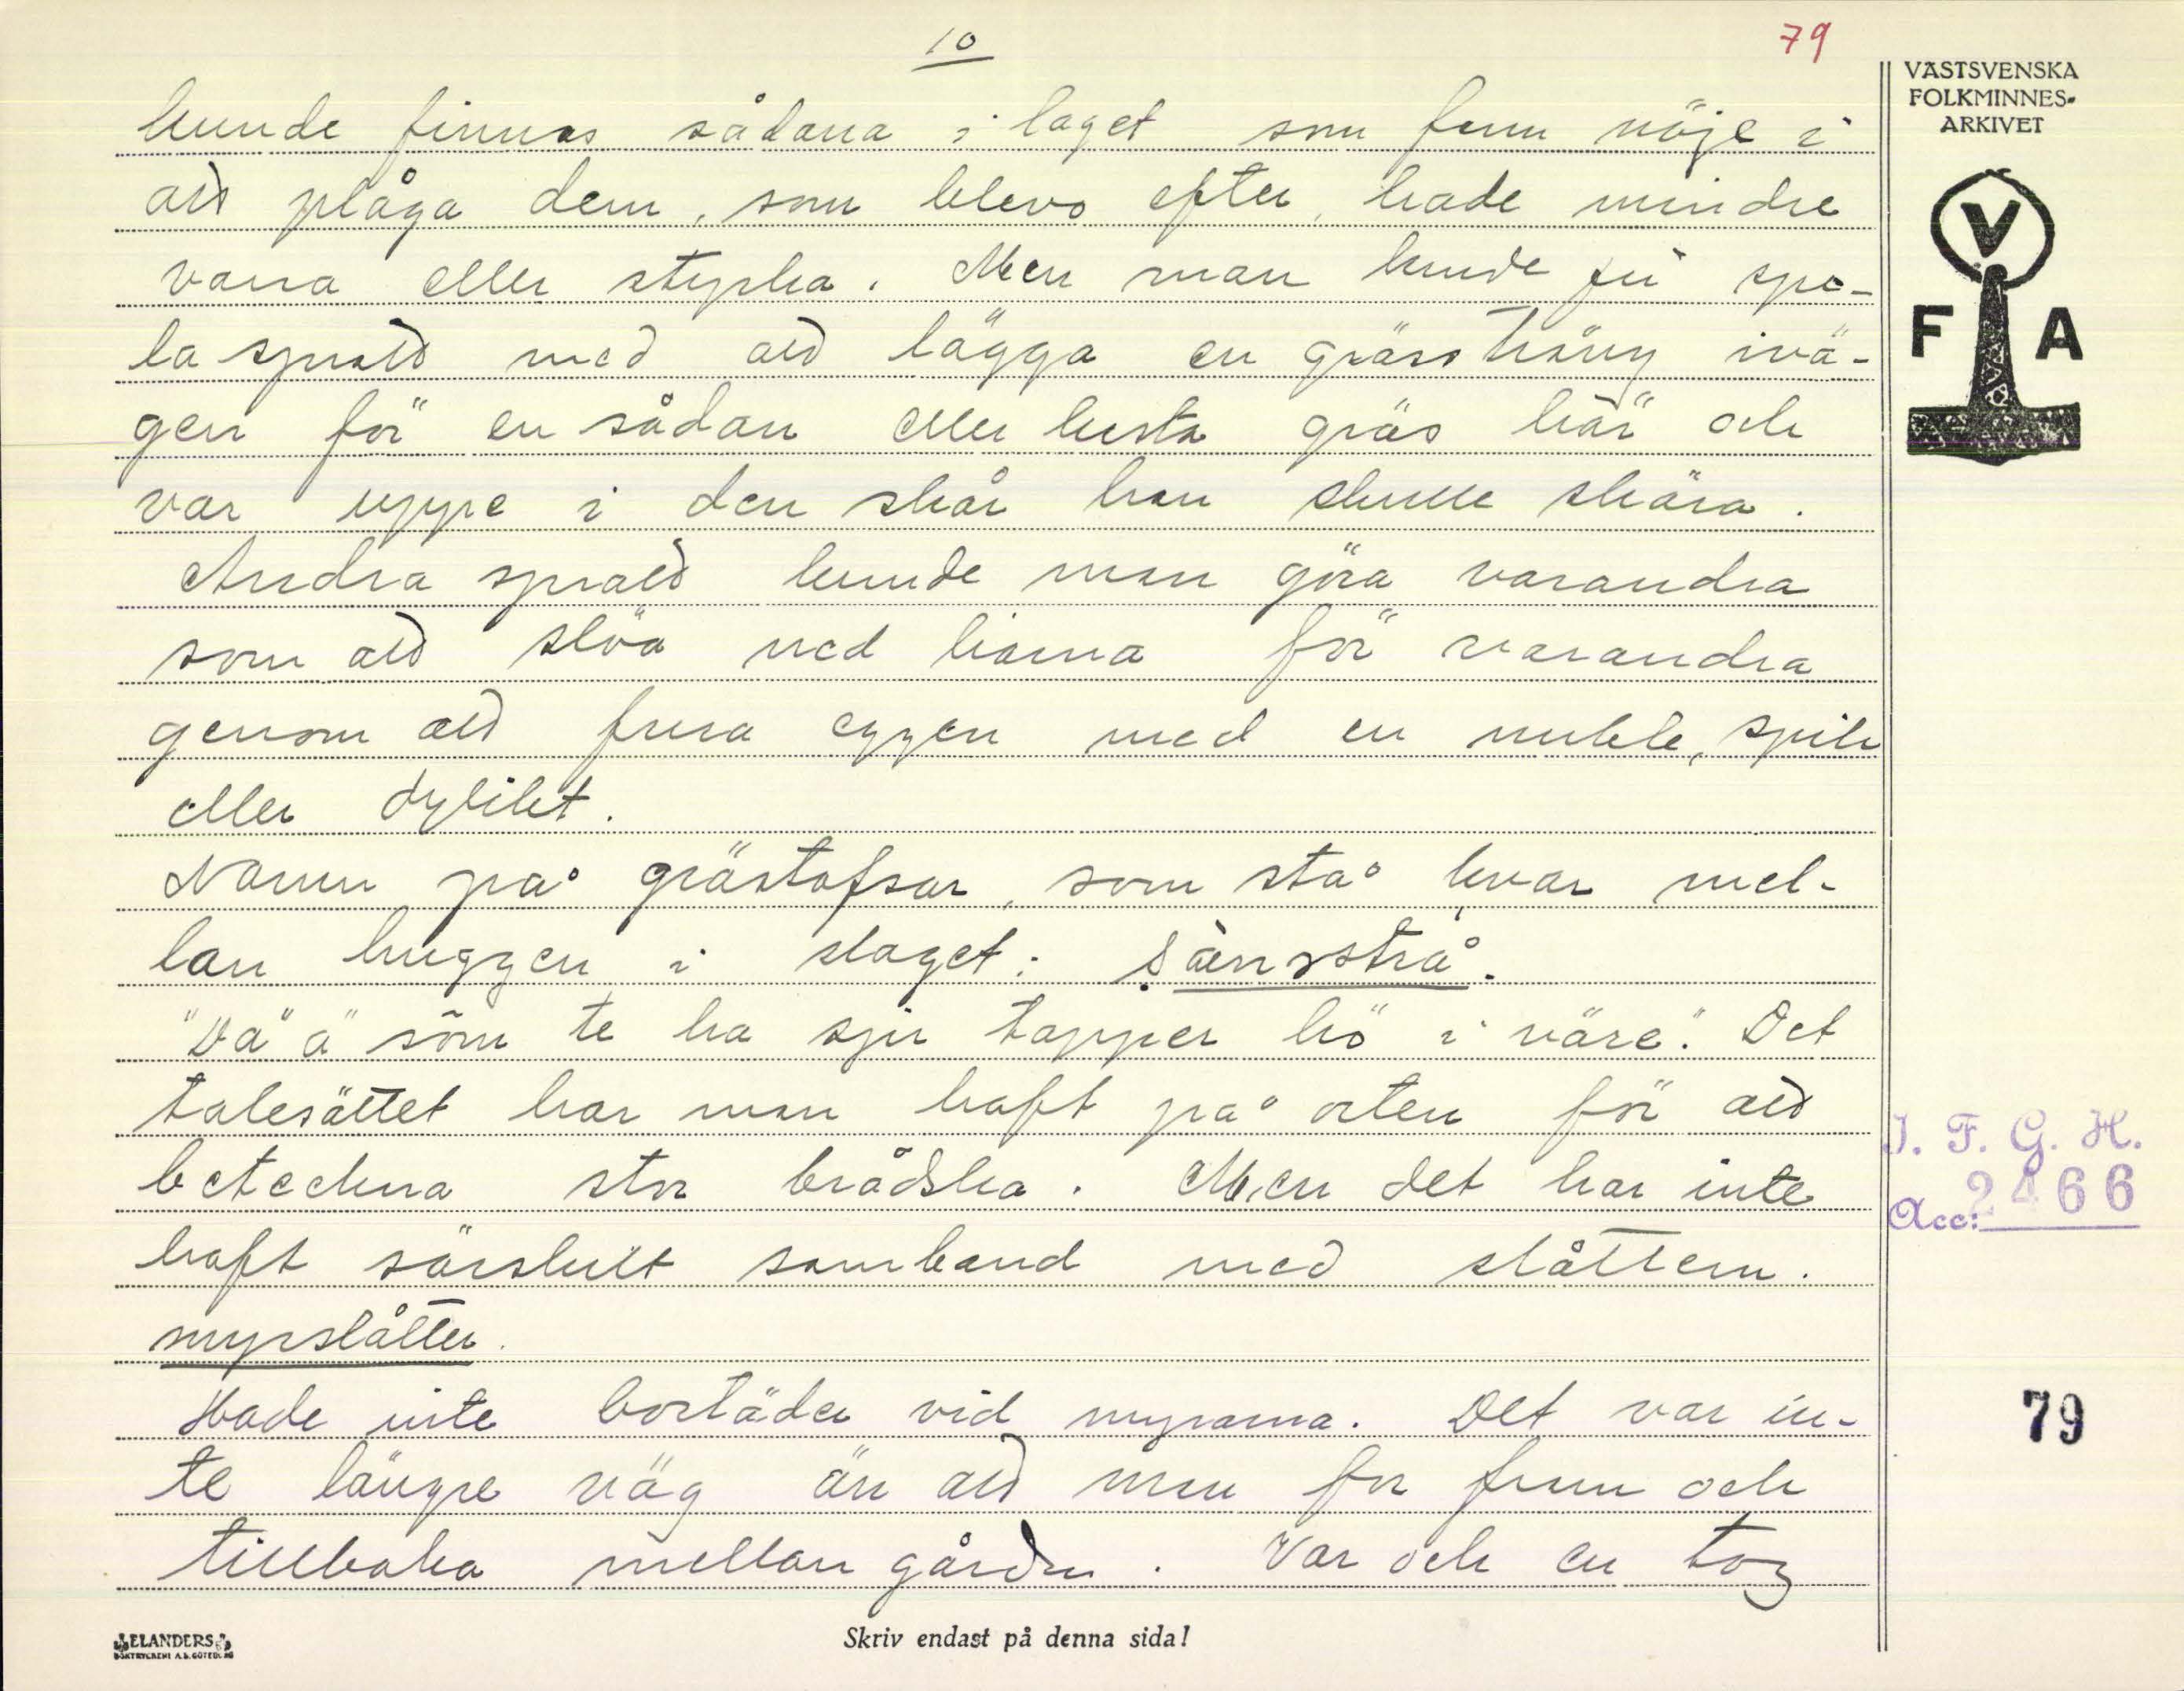 10
79
VÄSTSVENSKA
FOLKMINNES-
ARKIVET
V
F A
kunde finnas sådana i laget som fann nöje i
att plåga dem, som blevo efter, hade mindre
vana eller styrka. Men man kunde få spe-
la spratt med att lägga en grässträng ivä-
gen för en sådan eller kasta gräs här och
var uppe i den skår han skulle skära.
Andra spratt kunde man göra varandra
som att slöa ned liarna för varandra
genom att fara eggen med en nubb, spik
eller dylikt.
Namn på grästofsar, som stå kvar mel-
lan huggen i slaget: sänsstrå.
"Dä ä sôm te ha sju tapper hö i väre". Det
talesättet har man haft på orten för att
beteckna stor brådska. Men det har inte
haft särskilt samband med slåttern.
myrslåtter.
Hade inte bostäder vid myrarna. Det var in-
te längre väg än att man for fram och
tillbaka mellan gården. Var och en tog
I. F. G. H.
Acc: 2466
79
ELANDERS
BOKTRYCKERI A.B. GÖTEBORG
Skriv endast på denna sida!